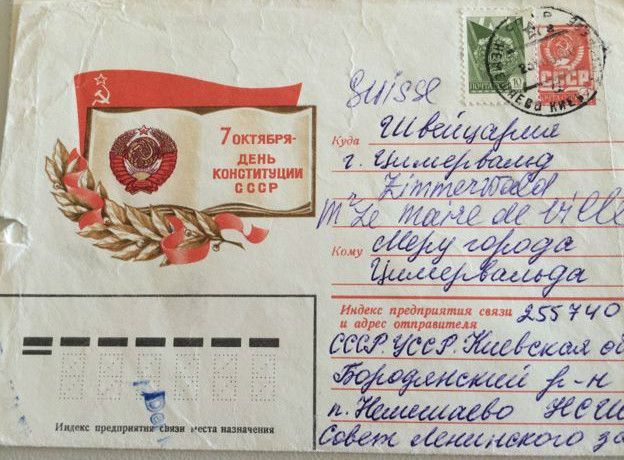 7 ОКТЯБРЯ-
ДЕНЬ
КОНСТИТУЦИИ
СССР
10
СССР
Suisse
Куда Швейцария
г. Цимервальд
Zimmerwald
M Le maire de ville
Кому Меру города
Цимервальда
Индекс предприятия связи 255740
и адрес отправителя
СССР. УССР. Киевская о
Бородянский р-н
п. Немешаево НСШ
Совет Ленинского за
Индекс предприятия связи места назначения